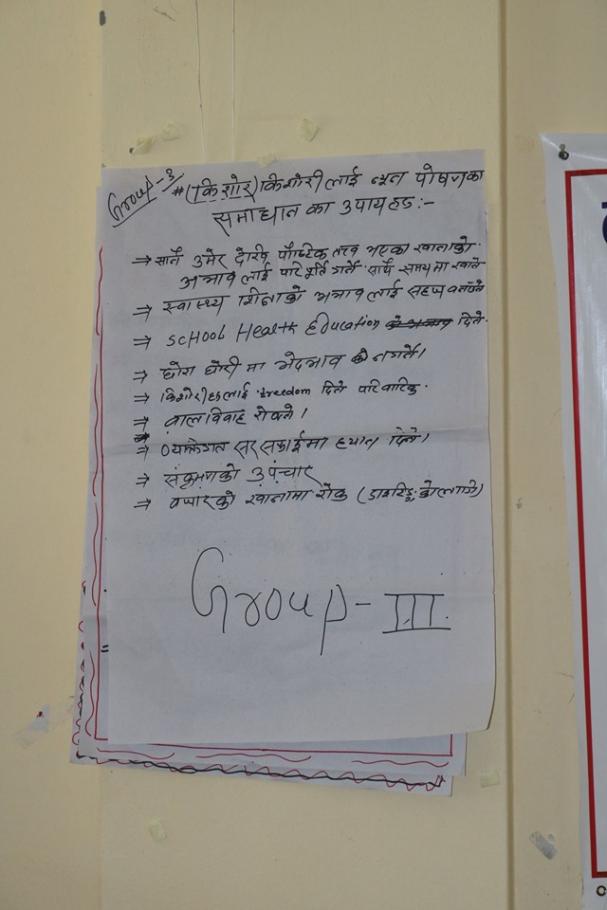 Group-3
#(किशोर) किशोरी लाई न्यून पोषणका
समाधान का उपायहरु:-
⇒ सानै उमेर देखि पौष्टिक तत्व भएका खानाको
अभाव लाई परिपूर्ति गर्ने साथै समयमा खाने
⇒ स्वास्थ्य शिक्षाको अभाव लाई सहज बनाउने
⇒ SCHOOL Health Education दिने.
⇒ छोरा छोरी मा भेदभाव नगर्ने।
⇒ किशोरीहरुलाई freedom दिने पारिवारिक.
⇒ बाल विवाह रोक्ने।
⇒ व्यक्तिगत सरसफाईमा ध्यान दिने।
⇒ संक्रमणको उपचार
⇒ बजारको खानामा रोक
Group-III